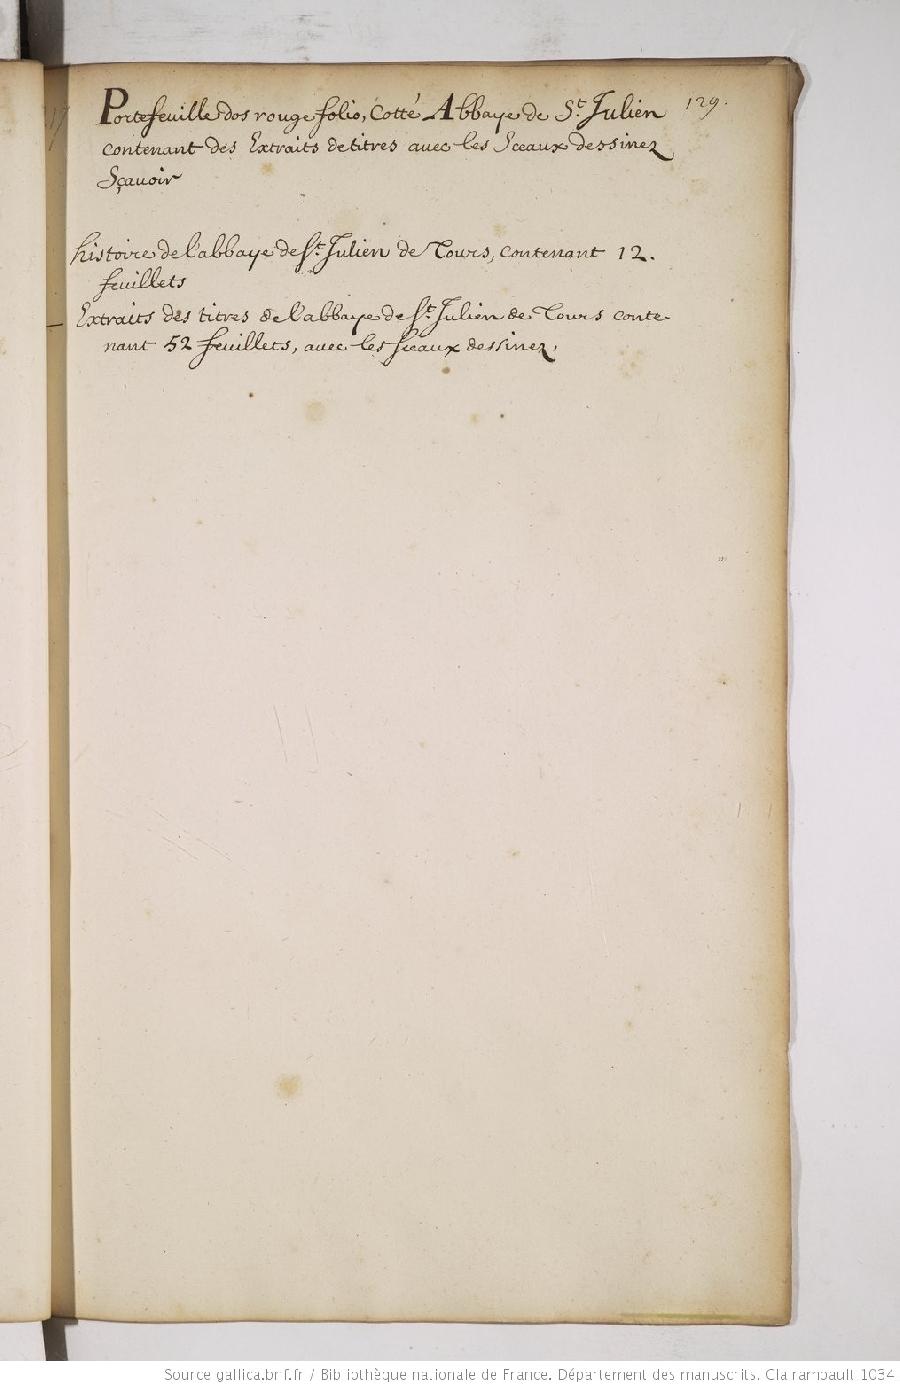 129.
Portefeuille dos rouge folio, Cotté Abbaye de St. Julien
contenant des Extraits de titres avec les Sceaux dessinez
Sçavoir
histoire de l'abbaye de St. Julien de Tours, contenant 12.
feuillets
Extraits des titres de l'abbaye de St. Julien de Tours conte-
nant 52 feuillets, avec les sceaux dessinez.
Source gallica.bnf.fr / Bibliothèque nationale de France. Département des manuscrits. Clairambault 1034